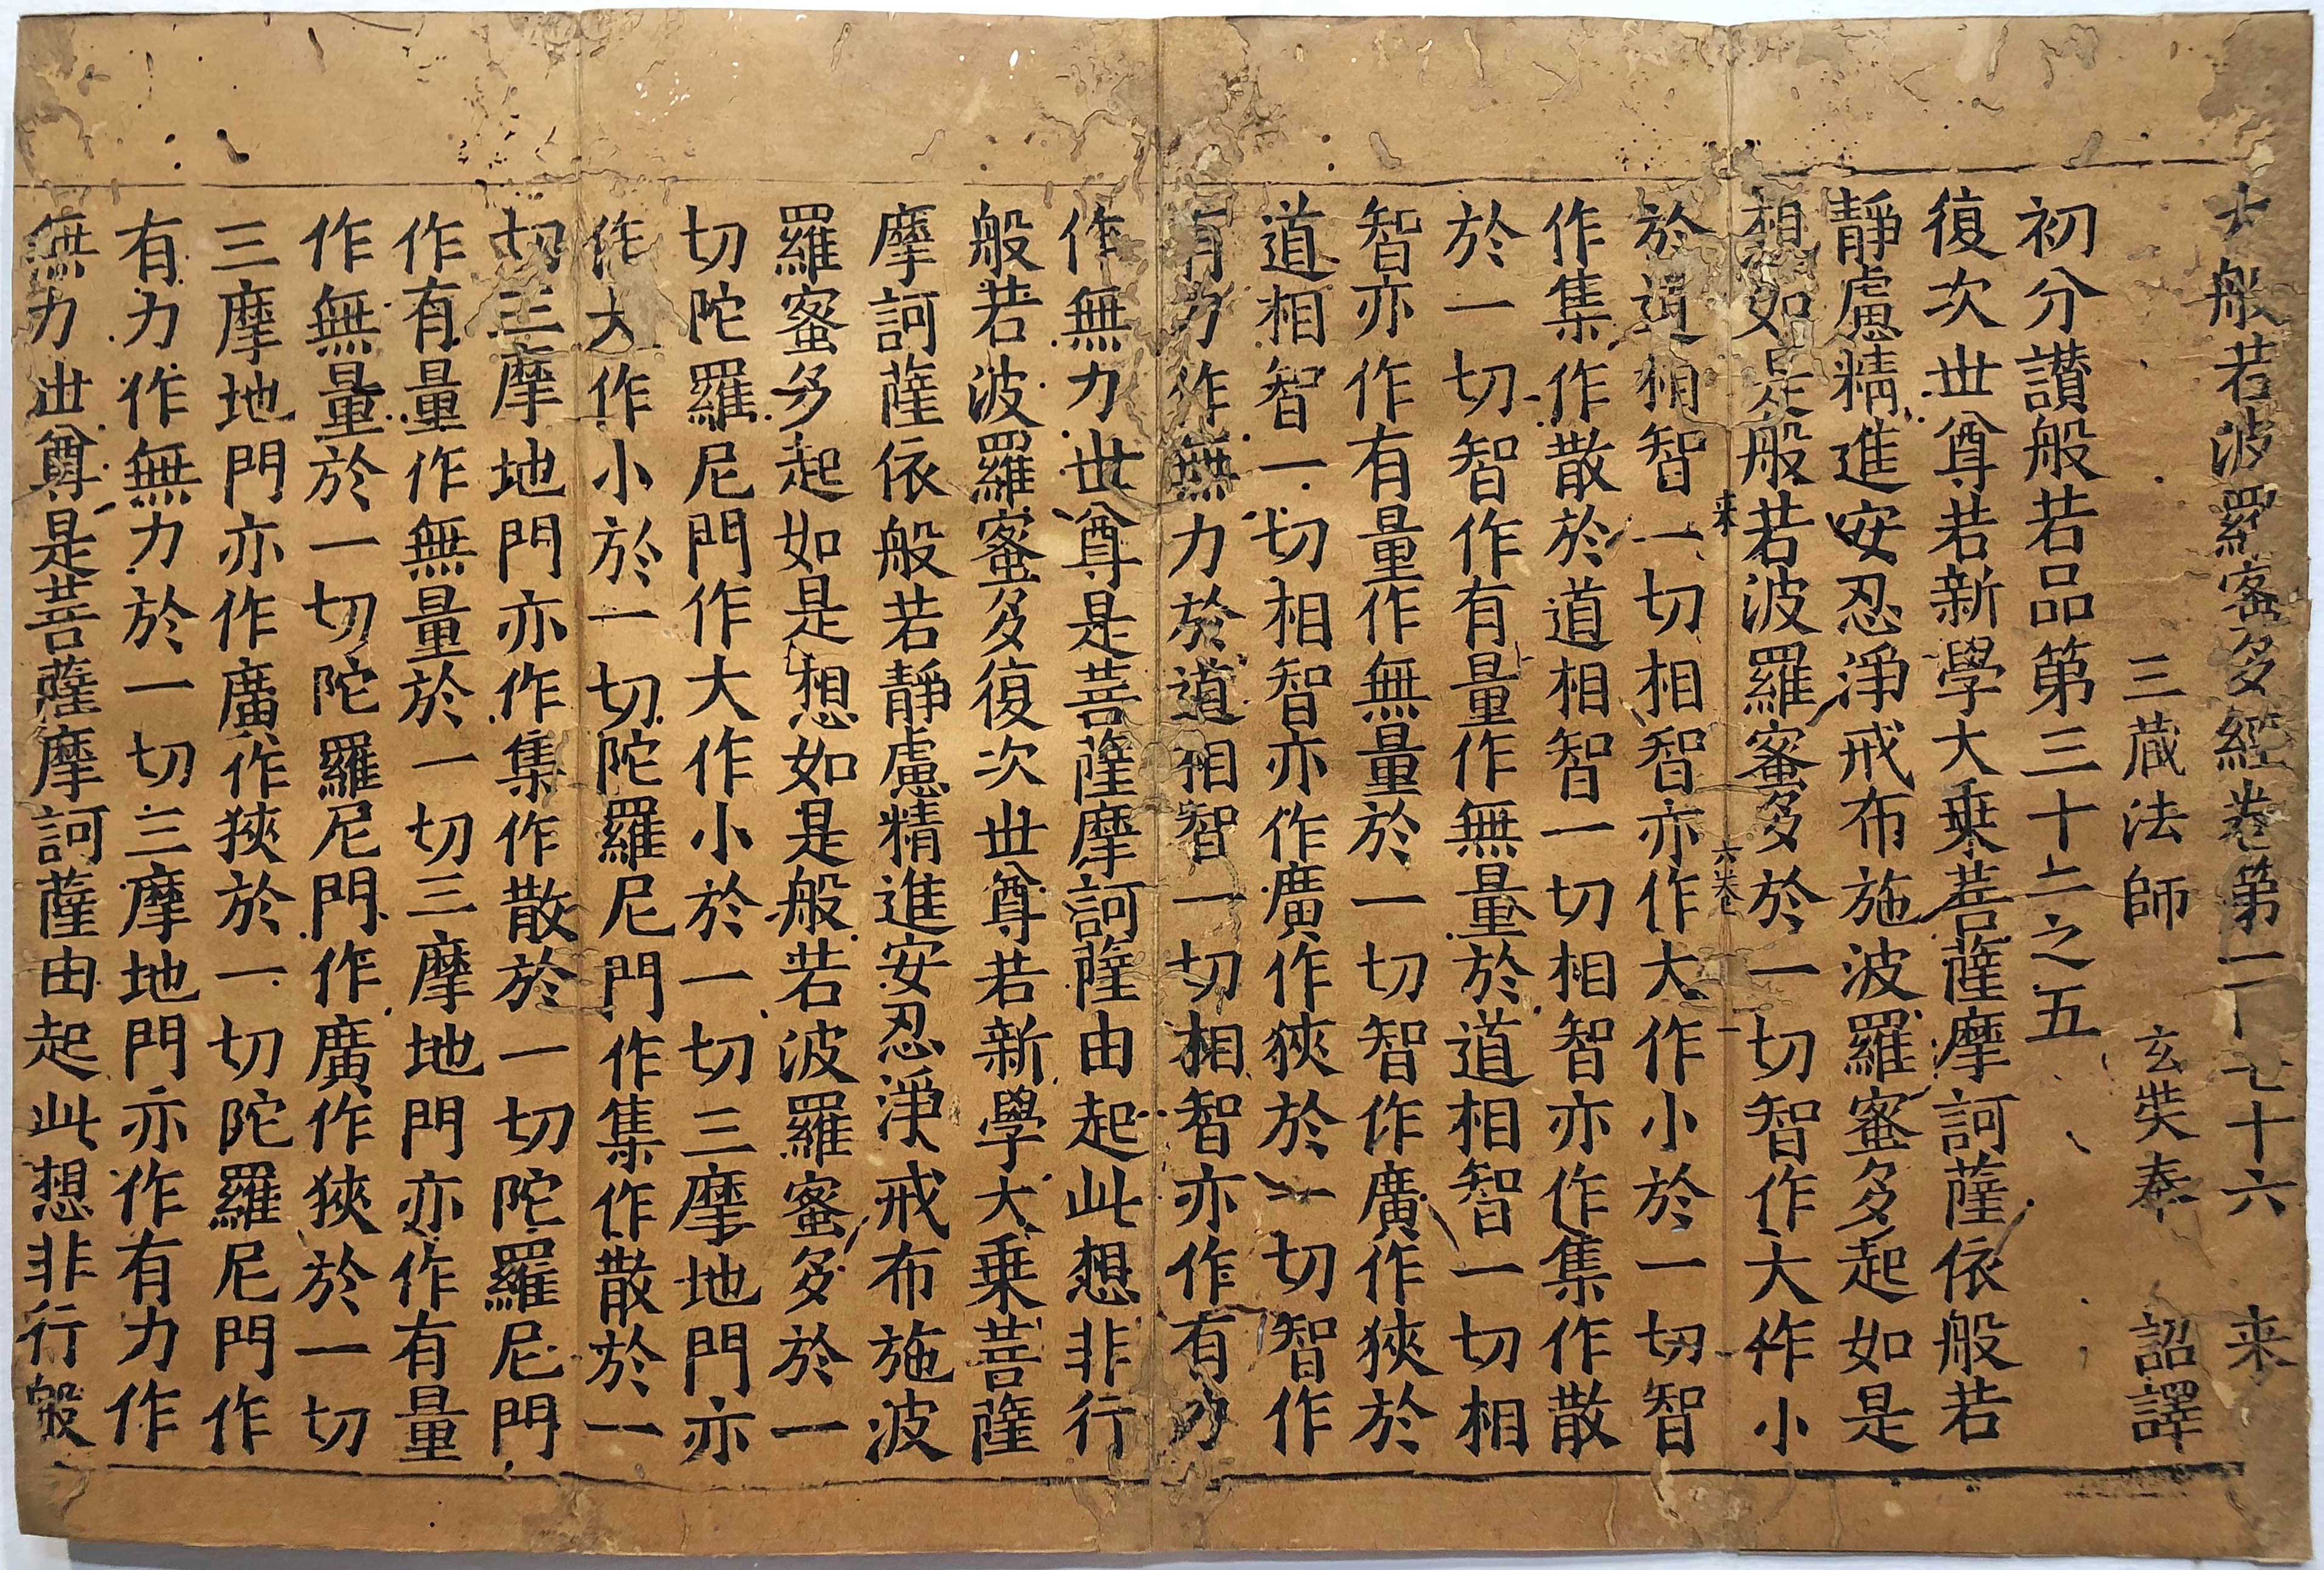 大般若波羅蜜多經卷第一百七十六 来
三蔵法師 玄奘奉 詔譯
初分讃般若品第三十二之五
復次世尊若新學大乗菩薩摩訶薩依般若
静慮精進安忍淨戒布施波羅蜜多起如是
想如是般若波羅蜜多於一切智作大作小
来 六卷 一
於道相智一切相智亦作大作小於一切智
作集作散於道相智一切相智亦作集作散
於一切智作有量作無量於道相智一切相
智亦作有量作無量於一切智作廣作狹於
道相智一切相智亦作廣作狹於一切智作
有力作無力於道相智一切相智亦作有力
作無力世尊是菩薩摩訶薩由起此想非行
般若波羅蜜多復次世尊若新學大乗菩薩
摩訶薩依般若靜慮精進安忍淨戒布施波
羅蜜多起如是想如是般若波羅蜜多於一
切陀羅尼門作大作小於一切三摩地門亦
作大作小於一切陀羅尼門作集作散於一
切三摩地門亦作集作散於一切陀羅尼門
作有量作無量於一切三摩地門亦作有量
作無量於一切陀羅尼門作廣作狹於一切
三摩地門亦作廣作狹於一切陀羅尼門作
有力作無力於一切三摩地門亦作有力作
無力世尊是菩薩摩訶薩由起此想非行般